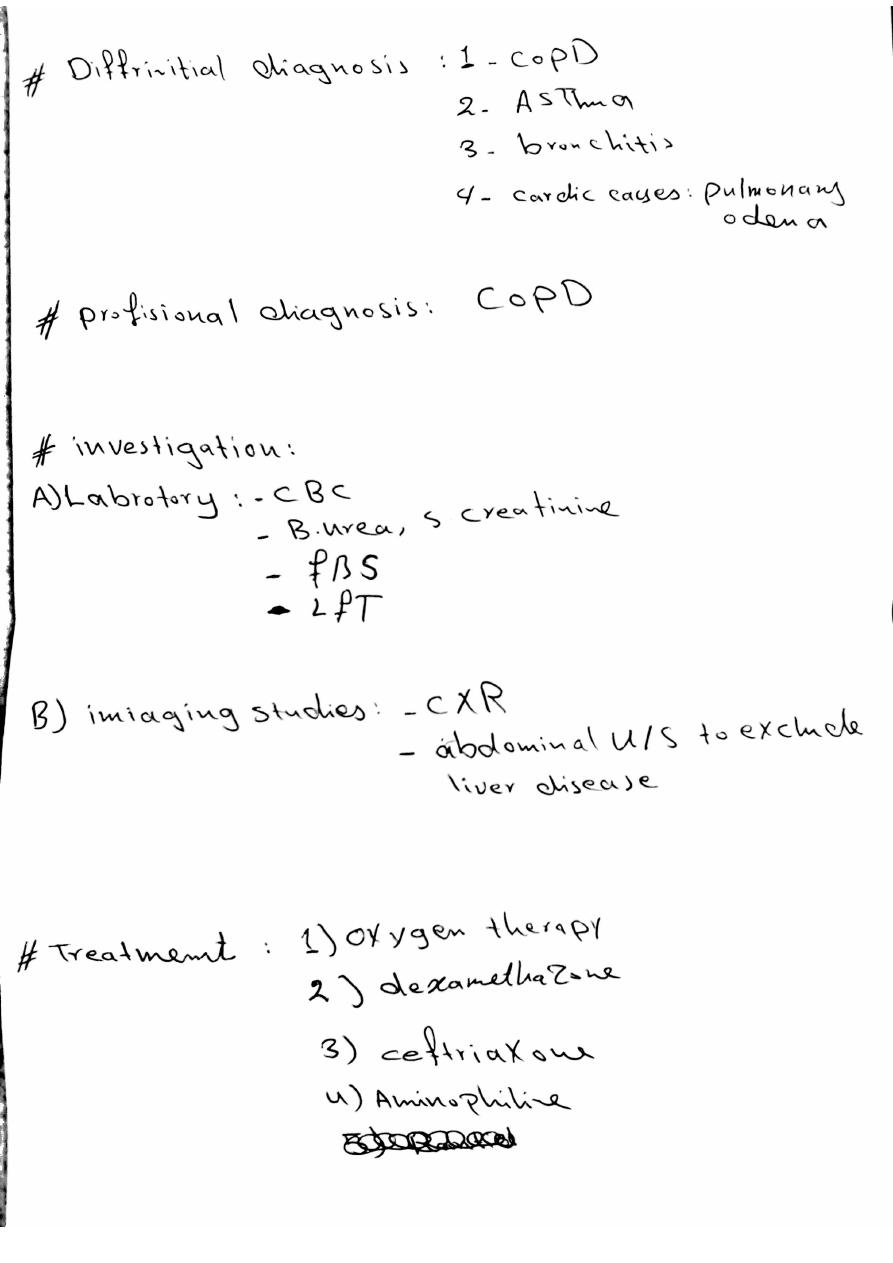 # Diffrinitial diagnosis : 1 - COPD
2 - ASThma
3 - bronchitis
4 - cardic causes: pulmonary
odema
# profisional diagnosis: COPD
# investigation:
A) Labrotory : - CBC
- B.urea, s creatinine
- fBS
- LfT
B) imiaging studies: - CXR
- abdominal U/S to exclude
liver disease
# Treatment : 1) oxygen therapy
2) dexamethazone
3) ceftriaxone
4) Aminophiline